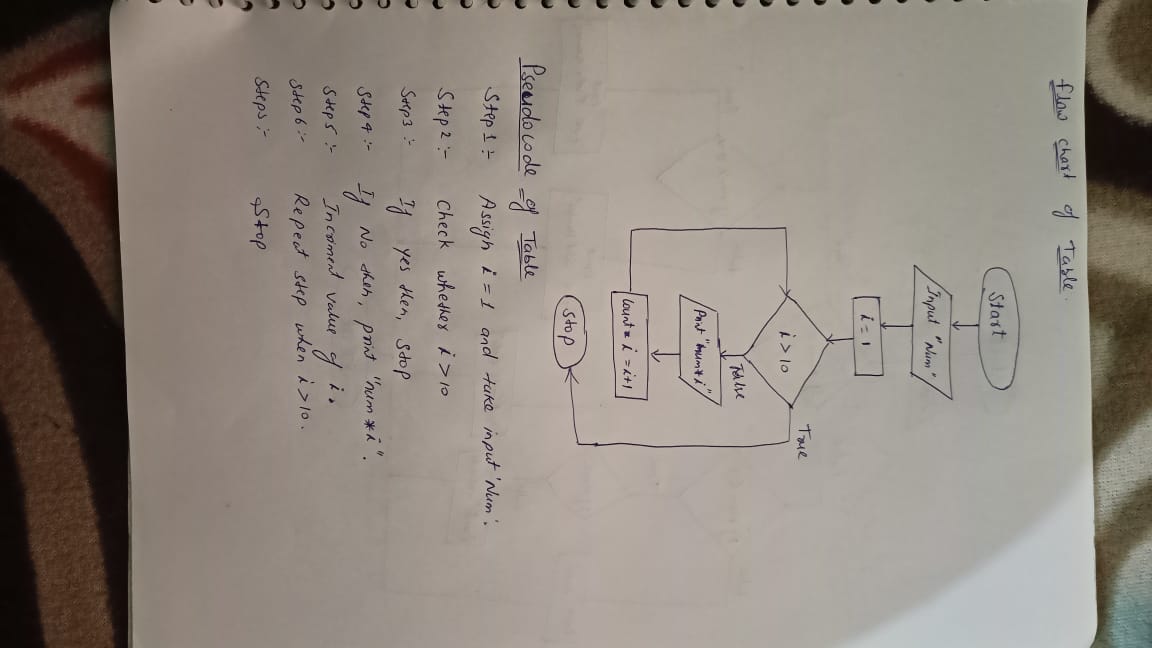 flow chart of Table.
Start
Input "Num"
i = 1
i > 10
True
False
Print "num * i"
i = i+1
Stop
Pseudocode of Table
Step 1:- Assign i = 1 and take input 'Num'.
Step 2:- Check whether i > 10
Step 3:- If yes then, stop
Step 4:- If No then, print "num * i".
Step 5:- Incriment value of i.
Step 6:- Repeat step when i > 10.
Stop